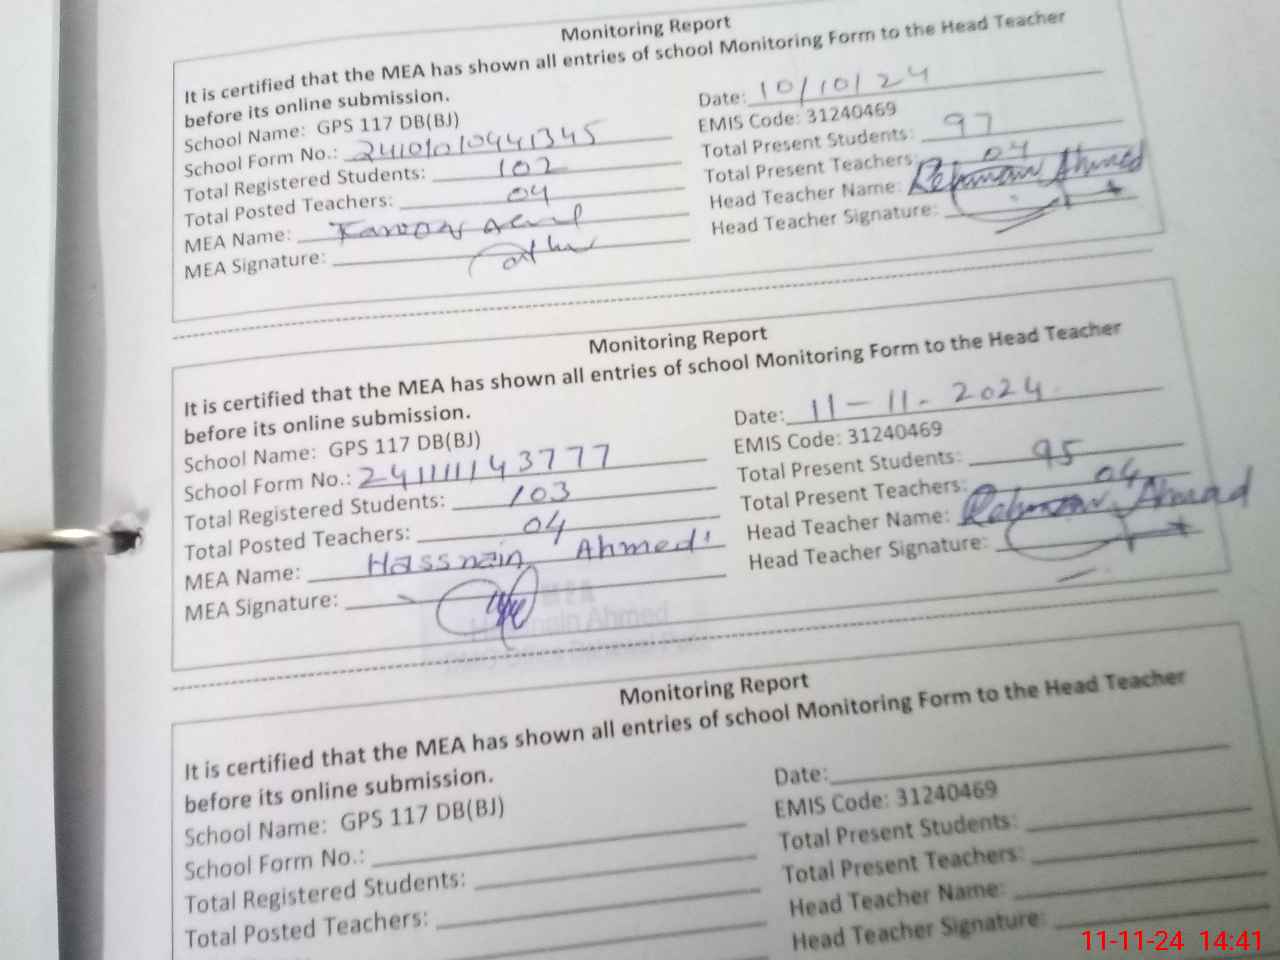 Monitoring Report
It is certified that the MEA has shown all entries of school Monitoring Form to the Head Teacher
before its online submission.
Date: 10/10/24
School Name: GPS 117 DB(BJ)
EMIS Code: 31240469
School Form No.:
Total Present Students: 97
Total Registered Students: 102
Total Present Teachers: 04
Total Posted Teachers: 04
Head Teacher Name: Rehman Ahmed
MEA Name:
Head Teacher Signature:
MEA Signature:
Monitoring Report
It is certified that the MEA has shown all entries of school Monitoring Form to the Head Teacher
before its online submission.
Date: 11-11-2024
School Name: GPS 117 DB(BJ)
EMIS Code: 31240469
School Form No.: 24111143777
Total Present Students: 95
Total Registered Students: 103
Total Present Teachers: 04
Total Posted Teachers: 04
Head Teacher Name: Ahmad
MEA Name: Hassnain Ahmed
Head Teacher Signature:
MEA Signature:
MEA
Ahmed
Monitoring Report
It is certified that the MEA has shown all entries of school Monitoring Form to the Head Teacher
before its online submission.
Date:
School Name: GPS 117 DB(BJ)
EMIS Code: 31240469
School Form No.:
Total Present Students:
Total Registered Students:
Total Present Teachers:
Total Posted Teachers:
Head Teacher Name:
Head Teacher Signature:
11-11-24 14:41